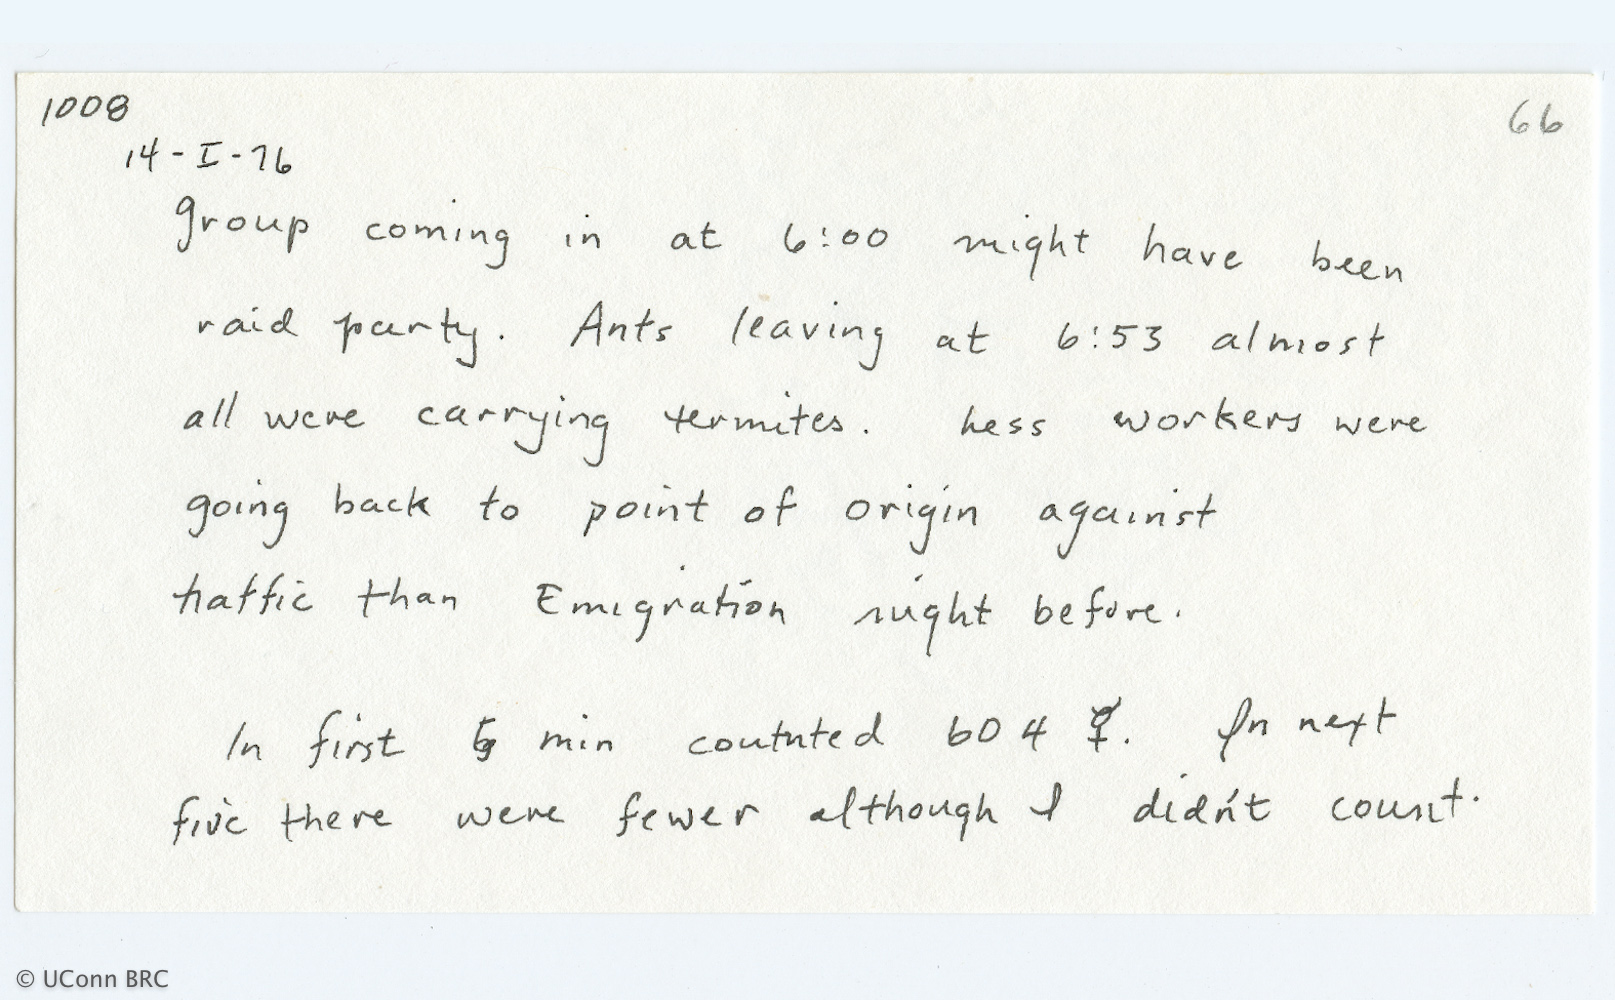 1008
66
14-I-76
group coming in at 6:00 might have been
raid party. Ants leaving at 6:53 almost
all were carrying termites. Less workers were
going back to point of origin against
traffic than Emigration night before.
In first 5 min coutnted 604 ☿. In next
five there were fewer although I didn't count.
© UConn BRC